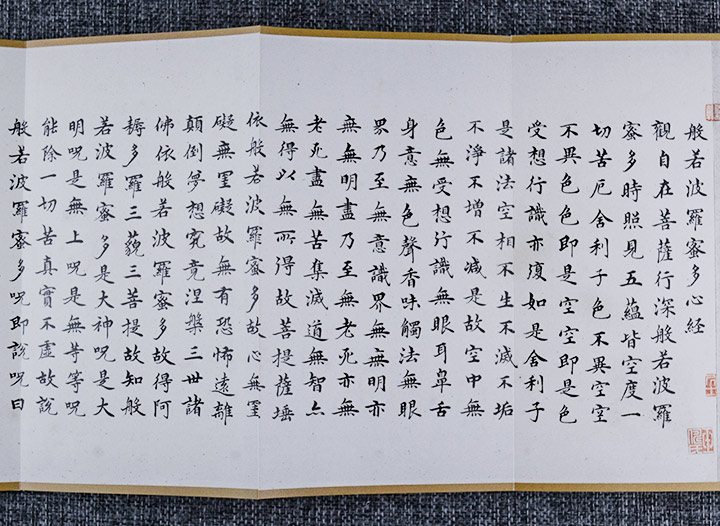 般若波羅蜜多心經
觀自在菩薩行深般若波羅
蜜多時照見五蘊皆空度一
切苦厄舍利子色不異空空
不異色色即是空空即是色
受想行識亦復如是舍利子
是諸法空相不生不滅不垢
不淨不增不減是故空中無
色無受想行識無眼耳鼻舌
身意無色聲香味觸法無眼
界乃至無意識界無無明亦
無無明盡乃至無老死亦無
老死盡無苦集滅道無智亦
無得以無所得故菩提薩埵
依般若波羅蜜多故心無罣
礙無罣礙故無有恐怖遠離
顛倒夢想究竟涅槃三世諸
佛依般若波羅蜜多故得阿
耨多羅三藐三菩提故知般
若波羅蜜多是大神呪是大
明呪是無上呪是無等等呪
能除一切苦真實不虛故說
般若波羅蜜多呪即說呪曰